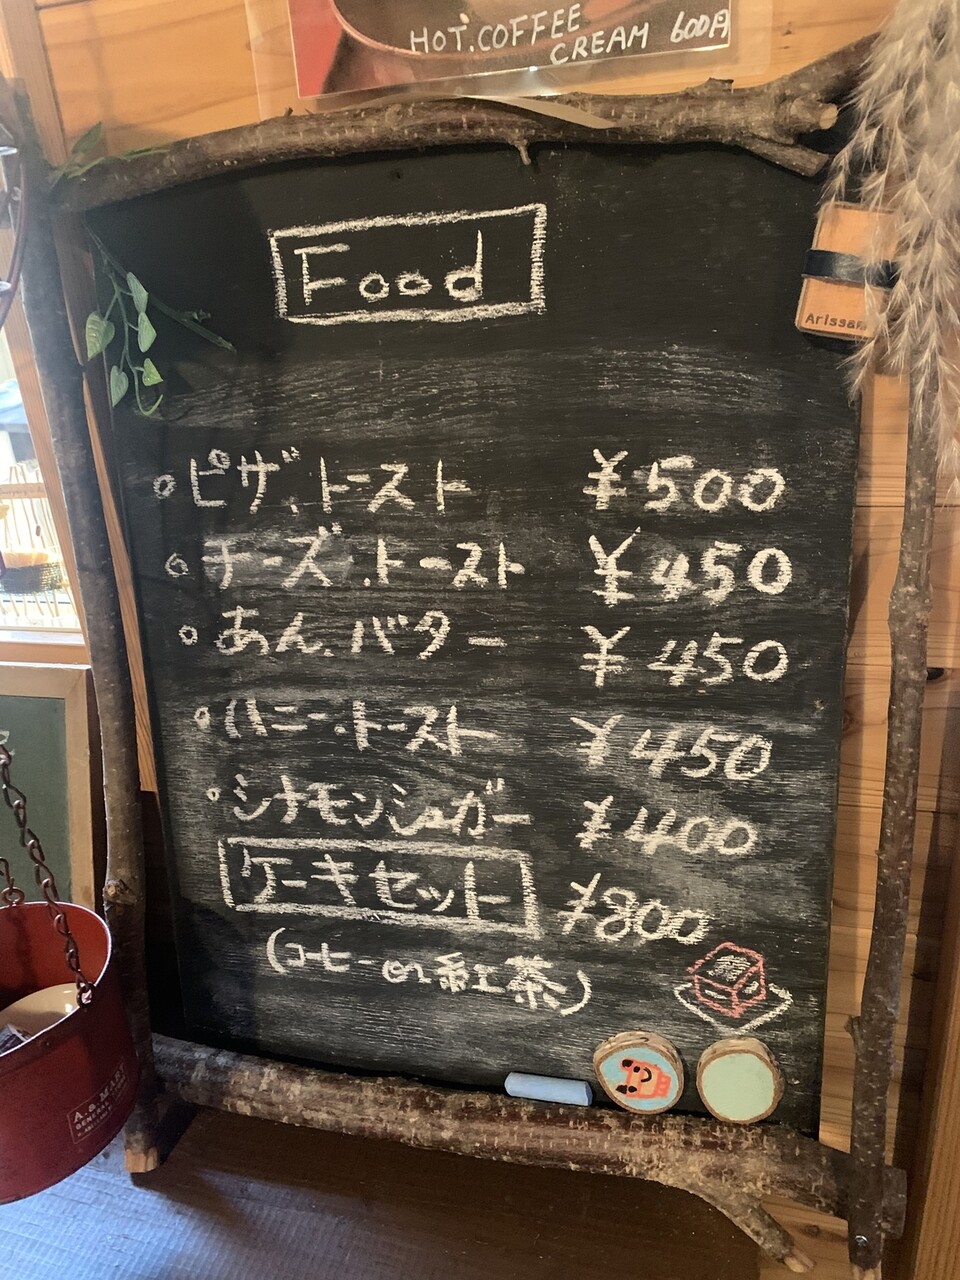 HOT.COFFEE
CREAM 600円
Food
Arissan
○ピザ.トースト ¥500
○チーズ.トースト ¥450
○あん.バター ¥450
○ハニー.トースト ¥450
○シナモンシュガー ¥400
ケーキセット ¥800
(コーヒー or 紅茶)